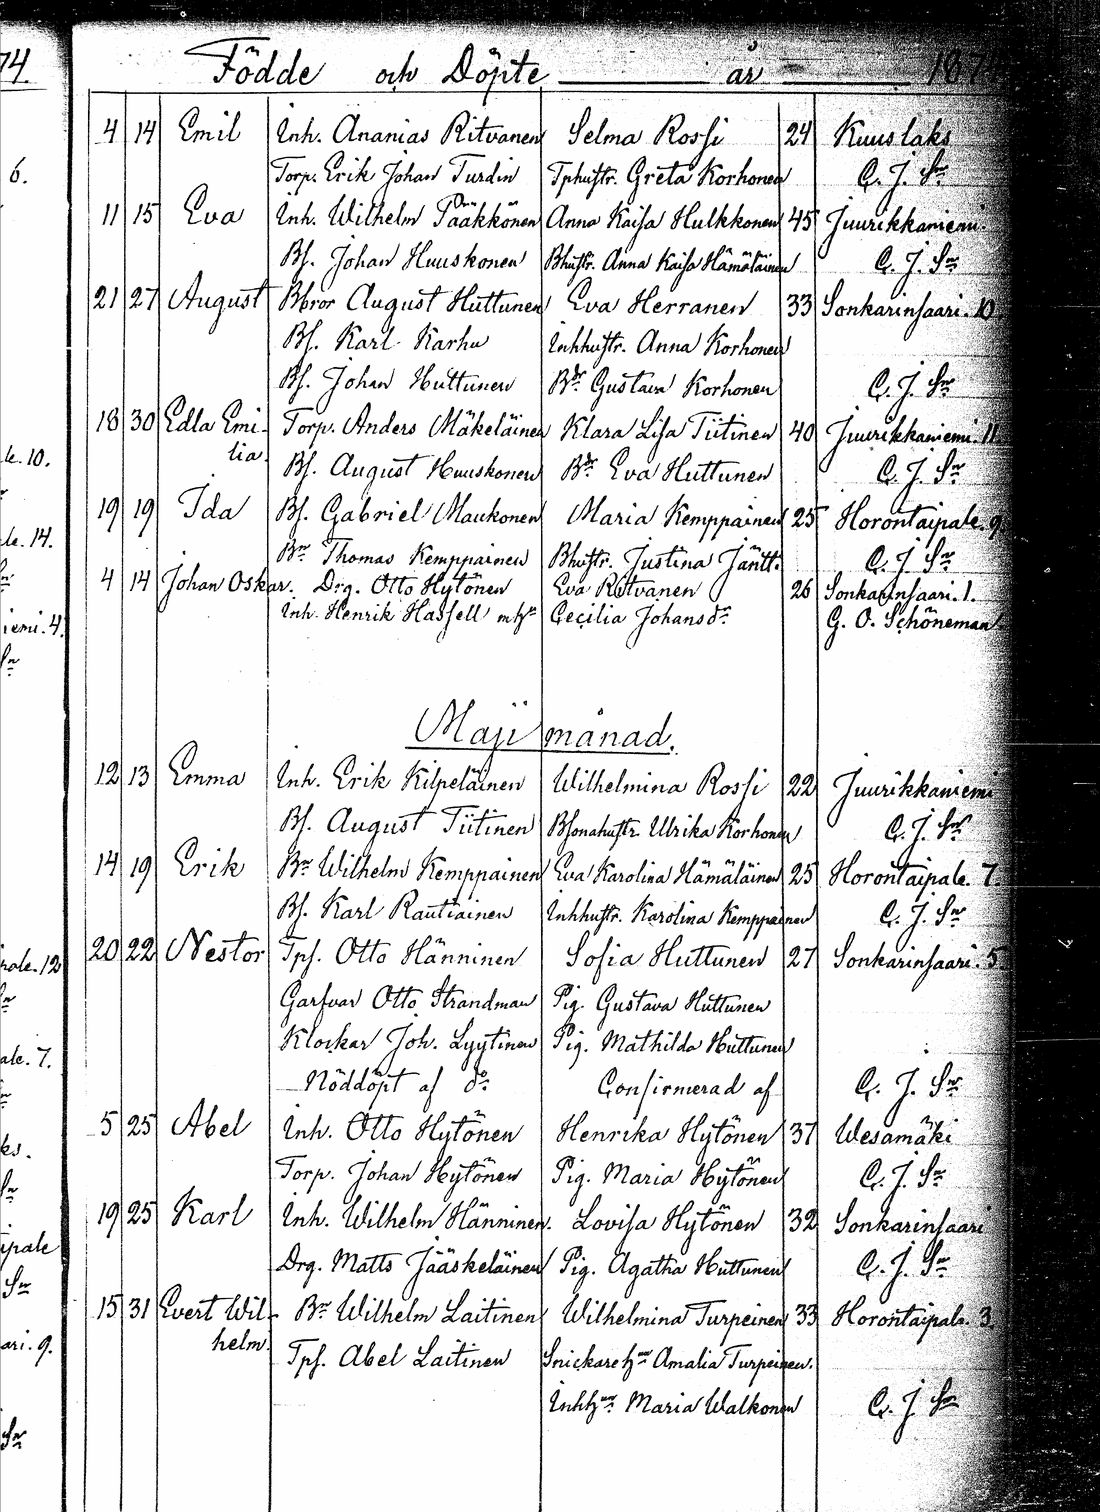 74.
Födde och Döpte år 187
4 14 Emil Inh. Ananias Ritvanen Selma Rossi 24 Kuuslaks
6.
Torp. Erik Johan Turdin Tphustr. Greta Korhonen C. J. Sn
11 15 Eva Inh. Wilhelm Pääkkönen Anna Kaisa Hulkkonen 45 Juurikkaniemi.
Bs. Johan Huuskonen Bhustr. Anna Kaisa Hämäläinen C. J. Sn
21 27 August Bbror August Huttunen Eva Herranen 33 Sonkarinsaari. 10
Bs. Karl Karhu Inhhustr. Anna Korhonen
Bs. Johan Huttunen Bdr Gustava Korhonen C. J. Sn
18 30 Edla Emi- Torp. Anders Mäkeläinen Klara Lisa Tiitinen 40 Juurikkaniemi. 11
le. 10.
lia. Bs. August Huuskonen Bdr Eva Huttunen C. J. Sn
19 19 Ida Bs. Gabriel Maukonen Maria Kemppainen 25 Horontaipale. 9.
le. 14.
Bn Thomas Kemppainen Bhustr. Justina Jäntt. C. J. Sn
4 14 Johan Oskar. Drg. Otto Hytönen Eva Ritvanen 26 Sonkarinsaari. 1.
Inh. Henrik Hassell m hn Cecilia Johansdr. G. O. Schöneman
iemi. 4.
Maji månad.
12 13 Emma Inh. Erik Kilpeläinen Wilhelmina Rossi 22 Juurikkaniemi
Bs. August Tiitinen Bsonahustr. Ulrika Korhonen C. J. Sn
14 19 Erik Bn Wilhelm Kemppainen Eva Karolina Hämäläinen 25 Horontaipale. 7.
Bs. Karl Rautiainen Inhhustr. Karolina Kemppainen C. J. Sn
20 22 Nestor Tps. Otto Hänninen Sofia Huttunen 27 Sonkarinsaari. 5
pale. 12
Garfvar Otto Strandman Pig. Gustava Huttunen
Klockar Joh. Lyytinen Pig. Mathilda Huttunen
ale. 7.
Nöddöpt af do Confirmerad af C. J. Sn
5 25 Abel Inh. Otto Hytönen Henrika Hytönen 37 Wesamäki
ks.
Torp. Johan Hytönen Pig. Maria Hytönen C. J. Sn
19 25 Karl Inh. Wilhelm Hänninen. Lovisa Hytönen 32 Sonkarinsaari
ipale
Drg. Matts Jääskeläinen Pig. Agatha Huttunen C. J. Sn
15 31 Evert Wil- Bn Wilhelm Laitinen Wilhelmina Turpeinen 33 Horontaipale. 3.
ari. 9.
helm. Tps. Abel Laitinen Snickareh:n Amalia Turpeinen.
Inhh:n Maria Walkonen C. J. Sn